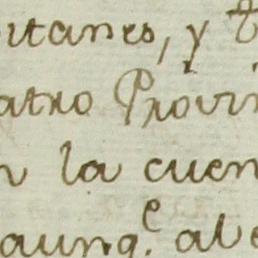 itanes, y
atro Provin
n la cuen
aunq.e al